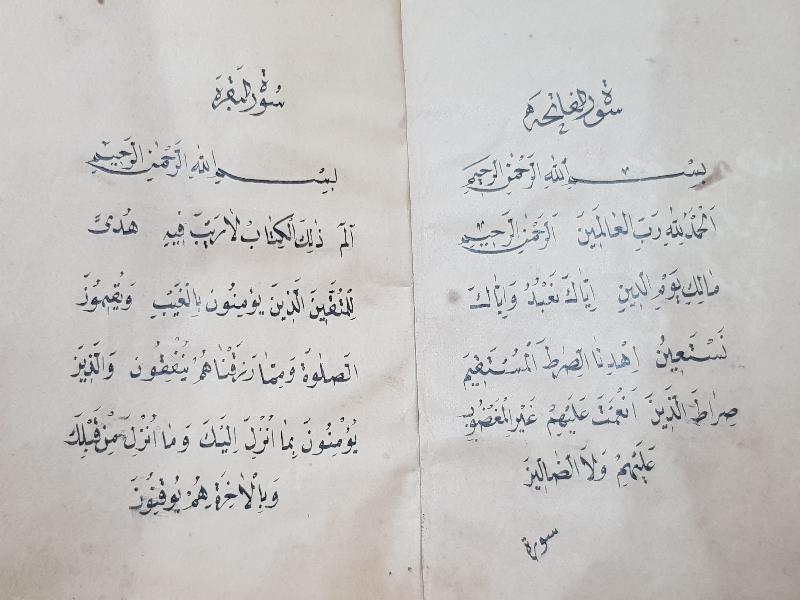 سورة الفاتحة
بسم الله الرحمن الرحيم
الحمد لله رب العالمين الرحمن الرحيم
مالك يوم الدين اياك نعبد واياك
نستعين اهدنا الصراط المستقيم
صراط الذين انعمت عليهم غير المغضوب
عليهم ولا الضالين
سورة
سورة البقرة
بسم الله الرحمن الرحيم
الم ذلك الكتاب لا ريب فيه هدىً
للمتقين الذين يؤمنون بالغيب ويقيمون
الصلوة ومما رزقناهم ينفقون والذين
يؤمنون بما انزل اليك وما انزل من قبلك
وبالاخرة هم يوقنون